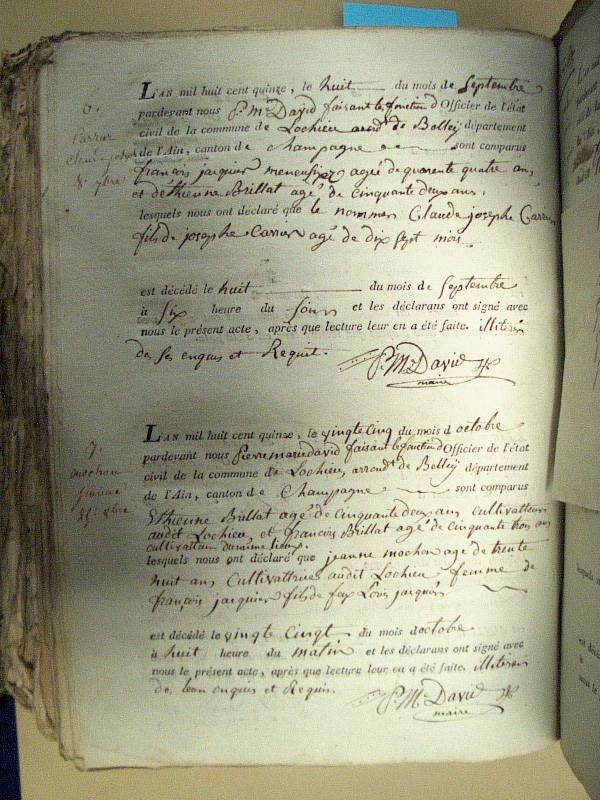 6.
Carrier
Claude joseph
8e 7bre
L'AN mil huit cent quinze, le huit du mois de Septembre
pardevant nous P. M. David faisant le fonction d Officier de l'état
civil de la commune de Lochieu arrond.t de Belley département
de l'Ain, canton de Champagne sont comparus
françois jacquier meneusier agée de quarente quatre ans
et d'Ethienne Brillat agé de cinquante deux ans.
lesquels nous ont déclaré que le nommer Claude josephe Carrier
fils de josephe Carrier agé de dix sept mois
est décédé le huit du mois de Septembre
à six heure du jour et les déclarans ont signé avec
nous le présent acte, après que lecture leur en a été faite. illiteris
de ses enquis et Requit.
P. M. David
maire
7.
mochon
jeanne
25e 8bre
L'AN mil huit cent quinze, le vingte cinq du mois d octobre
pardevant nous Pierre marie david faisant le fonction d Officier de l'état
civil de la commune de Lochieu arrond.t de Belley département
de l'Ain, canton de Champagne sont comparus
Ethienne Brillat agé de cinquante deux ans cultivatteur
audit Lochieu, et françois Brillat agé de cinquante trois ans
cultivatteur du même lieu.
lesquels nous ont déclaré que jeanne mochon age de trente
huit ans Cultivattrice audit Lochieu femme de
françois jacquier fils de feu Louis jacquier
est décédé le vingte cinqt du mois d octobre
à huit heure du matin et les déclarans ont signé avec
nous le présent acte, après que lecture leur en a été faite. illiteris
de leur enquis et Requis.
P. M. David
maire